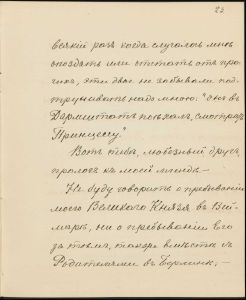 23
всякій разъ когда случалось мнѣ
опоздать или отстать отъ про-
чихъ, эти двое не забывали под-
трунивать надо мною: "онъ въ
Дармштатъ поѣхалъ, смотрѣть
Принцессу."
Вотъ тебѣ, любезный другъ,
прологъ къ моей
Не буду говорить о пребываніи
моего Великаго Князя въ Вей-
марѣ, ни о пребываніи Его
за тѣмъ, также вмѣстѣ съ
Родителями въ Берлинѣ. —